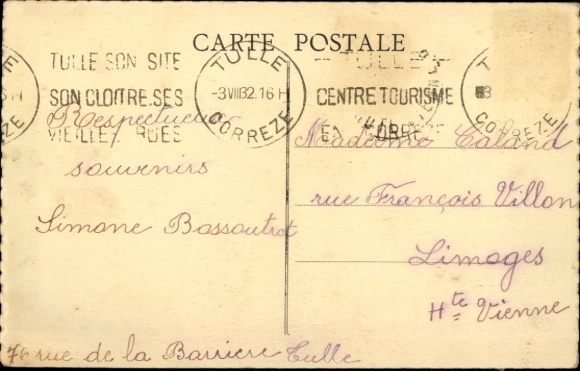 CARTE POSTALE
TULLE SON SITE
SON CLOITRE.SES
VIEILLES RUES
TULLE
-3 VIII 32.16H
CORREZE
TULLE
CENTRE TOURISME
CORREZE
CORREZE
Respectueux
souvenirs
Simone Bassoutrot
76 rue de la Barriere Tulle
Madame Caland
rue François Villon
Limoges
Hte Vienne